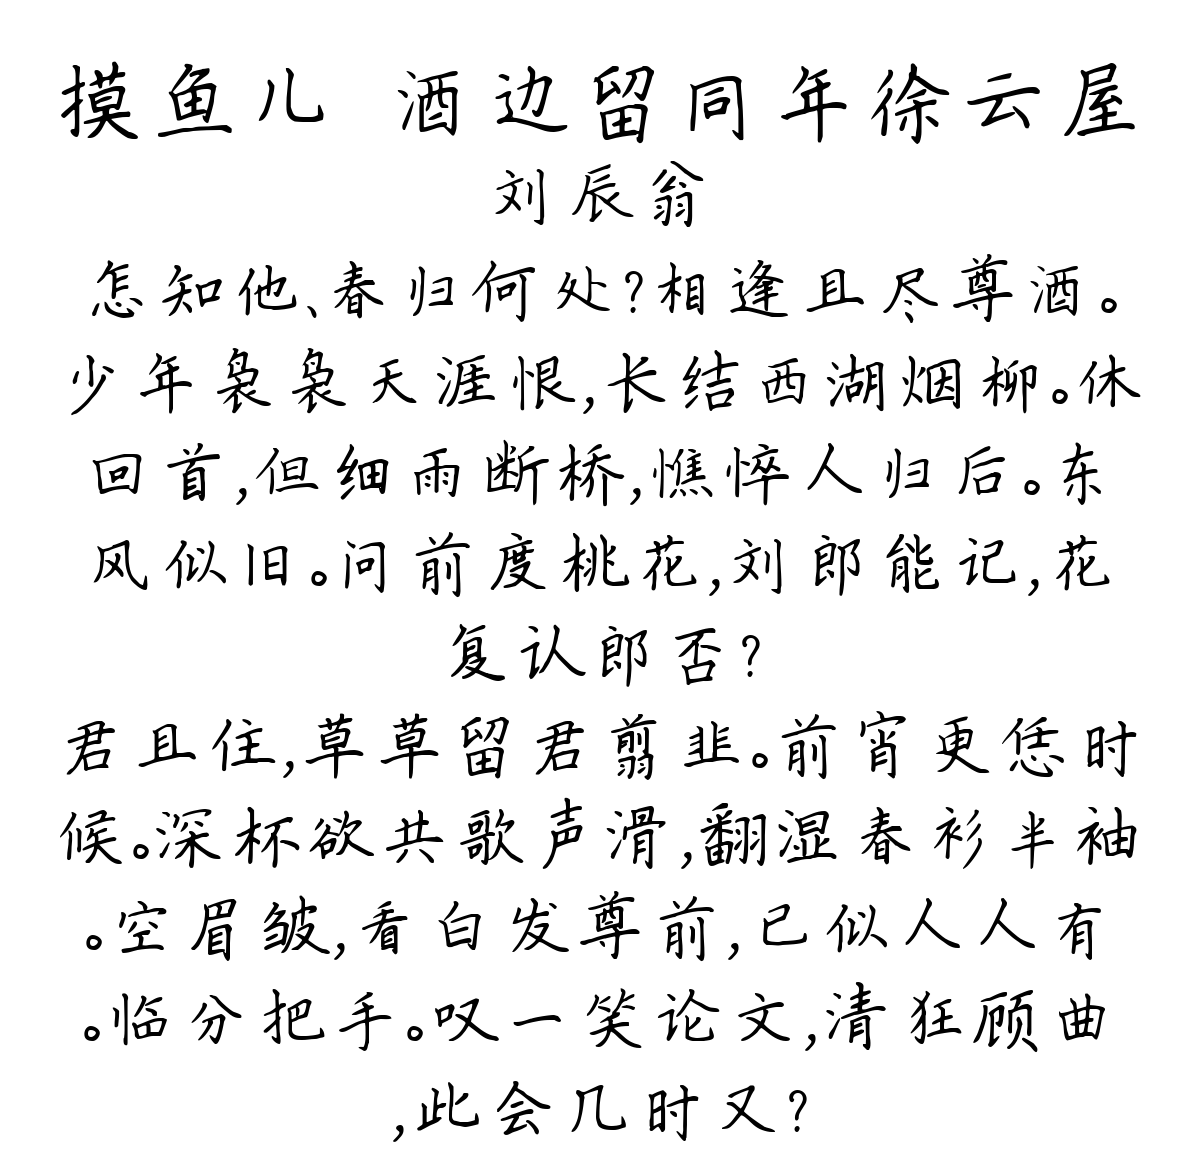 摸鱼儿 酒边留同年徐云屋
刘辰翁
怎知他、春归何处?相逢且尽尊酒。
少年袅袅天涯恨,长结西湖烟柳。休
回首,但细雨断桥,憔悴人归后。东
风似旧。问前度桃花,刘郎能记,花
复认郎否?
君且住,草草留君翦韭。前宵更恁时
候。深杯欲共歌声滑,翻湿春衫半袖
。空眉皱,看白发尊前,已似人人有
。临分把手。叹一笑论文,清狂顾曲
,此会几时又?